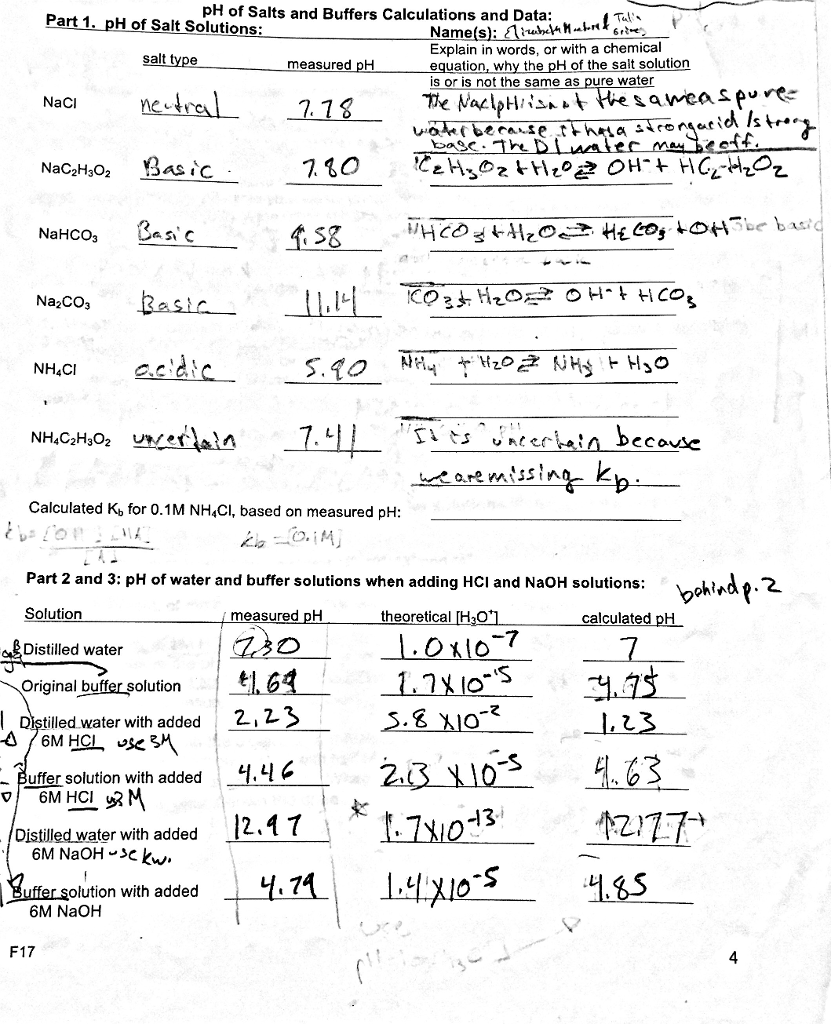 pH of Salts and Buffers Calculations and Data:
Part 1. pH of Salt Solutions:
Name(s): Elizabeth
Explain in words, or with a chemical
equation, why the pH of the salt solution
is or is not the same as pure water
salt type measured pH
NaCl neutral 7.78 The NaclpH isnot the same as pure
water because it has a strong acid /strong
base. The DI water may be off.
NaC₂H₃O₂ Basic 7.80 C₂H₃O₂ + H₂O ⇌ OH⁻ + HC₂H₃O₂
NaHCO₃ Basic 9.58 HCO₃ + H₂O ⇌ H₂CO₃ + OH⁻ be basic
Na₂CO₃ Basic 11.14 CO₃ + H₂O ⇌ OH⁻ + HCO₃
NH₄Cl acidic 5.90 NH₄ + H₂O ⇌ NH₃ + H₃O
NH₄C₂H₃O₂ uncertain 7.41 It is uncertain because
we are missing Kb.
Calculated Kb for 0.1M NH₄Cl, based on measured pH:
kb =[0.1M]
Part 2 and 3: pH of water and buffer solutions when adding HCl and NaOH solutions:
behind p. 2
Solution measured pH theoretical [H₃O⁺] calculated pH
Distilled water 7.30 1.0 x10⁻⁷ 7
Original buffer solution 4.69 1.7 X 10⁻⁵ 4.75
Distilled water with added 2.23 5.8 X10⁻² 1.23
6M HCl use 3M
Buffer solution with added 4.46 2.3 X10⁻⁵ 4.63
6M HCl 3 M
Distilled water with added 12.97 * 1.7X10⁻¹³ 12.77
6M NaOH - use kw.
Buffer solution with added 4.79 1.4 X10⁻⁵ 4.85
6M NaOH
use
F17
4